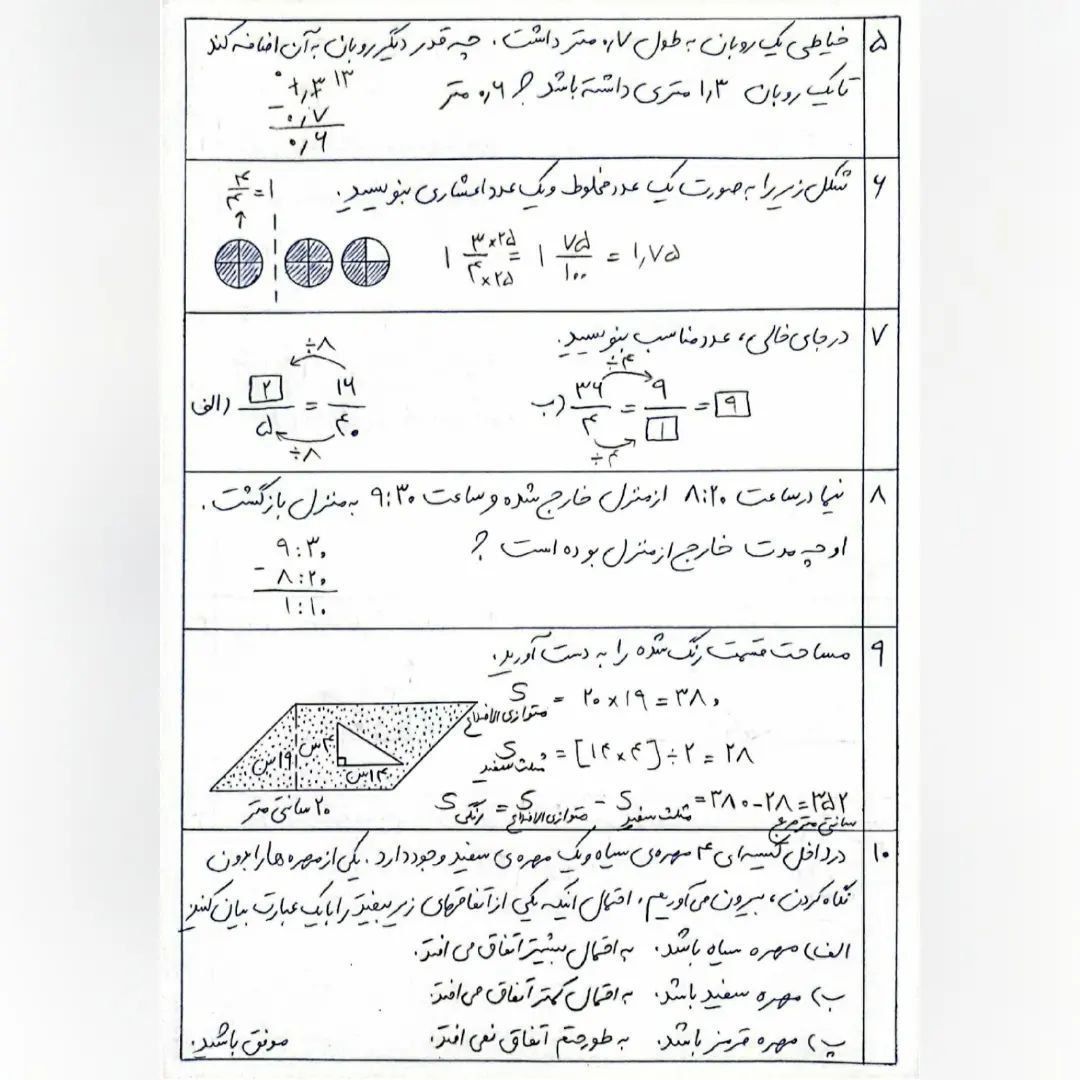 ۵ خیاطی یک روبان به طول ۰٫۷ متر داشت. چه قدر دیگر روبان به آن اضافه کند
تا یک روبان ۱٫۳ متری داشته باشد؟ ۰٫۶ متر
۰ ۱۳
۱٫۳
- ۰٫۷
۰٫۶
۶ شکل زیر را به صورت یک عدد مخلوط و یک عدد اعشاری بنویسید.
۴/۴ = ۱
۱ ۳×۲۵/۴×۲۵ = ۱ ۷۵/۱۰۰ = ۱٫۷۵
۷ در جای خالی، عدد مناسب بنویسید.
الف) ۲/۵ = ۱۶/۴۰
÷۸
÷۸
ب) ۳۶/۴ = ۹/۱ = ۹
÷۴
÷۴
۸ نیما در ساعت ۸:۲۰ از منزل خارج شده و ساعت ۹:۳۰ به منزل بازگشت.
او چه مدت خارج از منزل بوده است؟
۹:۳۰
- ۸:۲۰
۱:۱۰
۹ مساحت قسمت رنگ شده را به دست آورید.
S متوازی الاضلاع = ۲۰×۱۹=۳۸۰
S مثلث سفید = [۱۴×۴]÷۲=۲۸
S رنگی = S متوازی الاضلاع - S مثلث سفید = ۳۸۰-۲۸=۳۵۲ سانتی متر مربع
۱۹س
۴س
۱۴س
۲۰ سانتی متر
۱۰ در داخل کیسه ای ۴ مهره ی سیاه و یک مهره ی سفید وجود دارد. یکی از مهره ها را بدون
نگاه کردن، بیرون می آوریم. احتمال اینکه یکی از اتفاق های زیر بیفتد را با یک عبارت بیان کنید
الف) مهره سیاه باشد. به احتمال بیشتر اتفاق می افتد.
ب) مهره سفید باشد. به احتمال کمتر اتفاق می افتد.
پ) مهره قرمز باشد. به طور حتم اتفاق نمی افتد. موفق باشید.